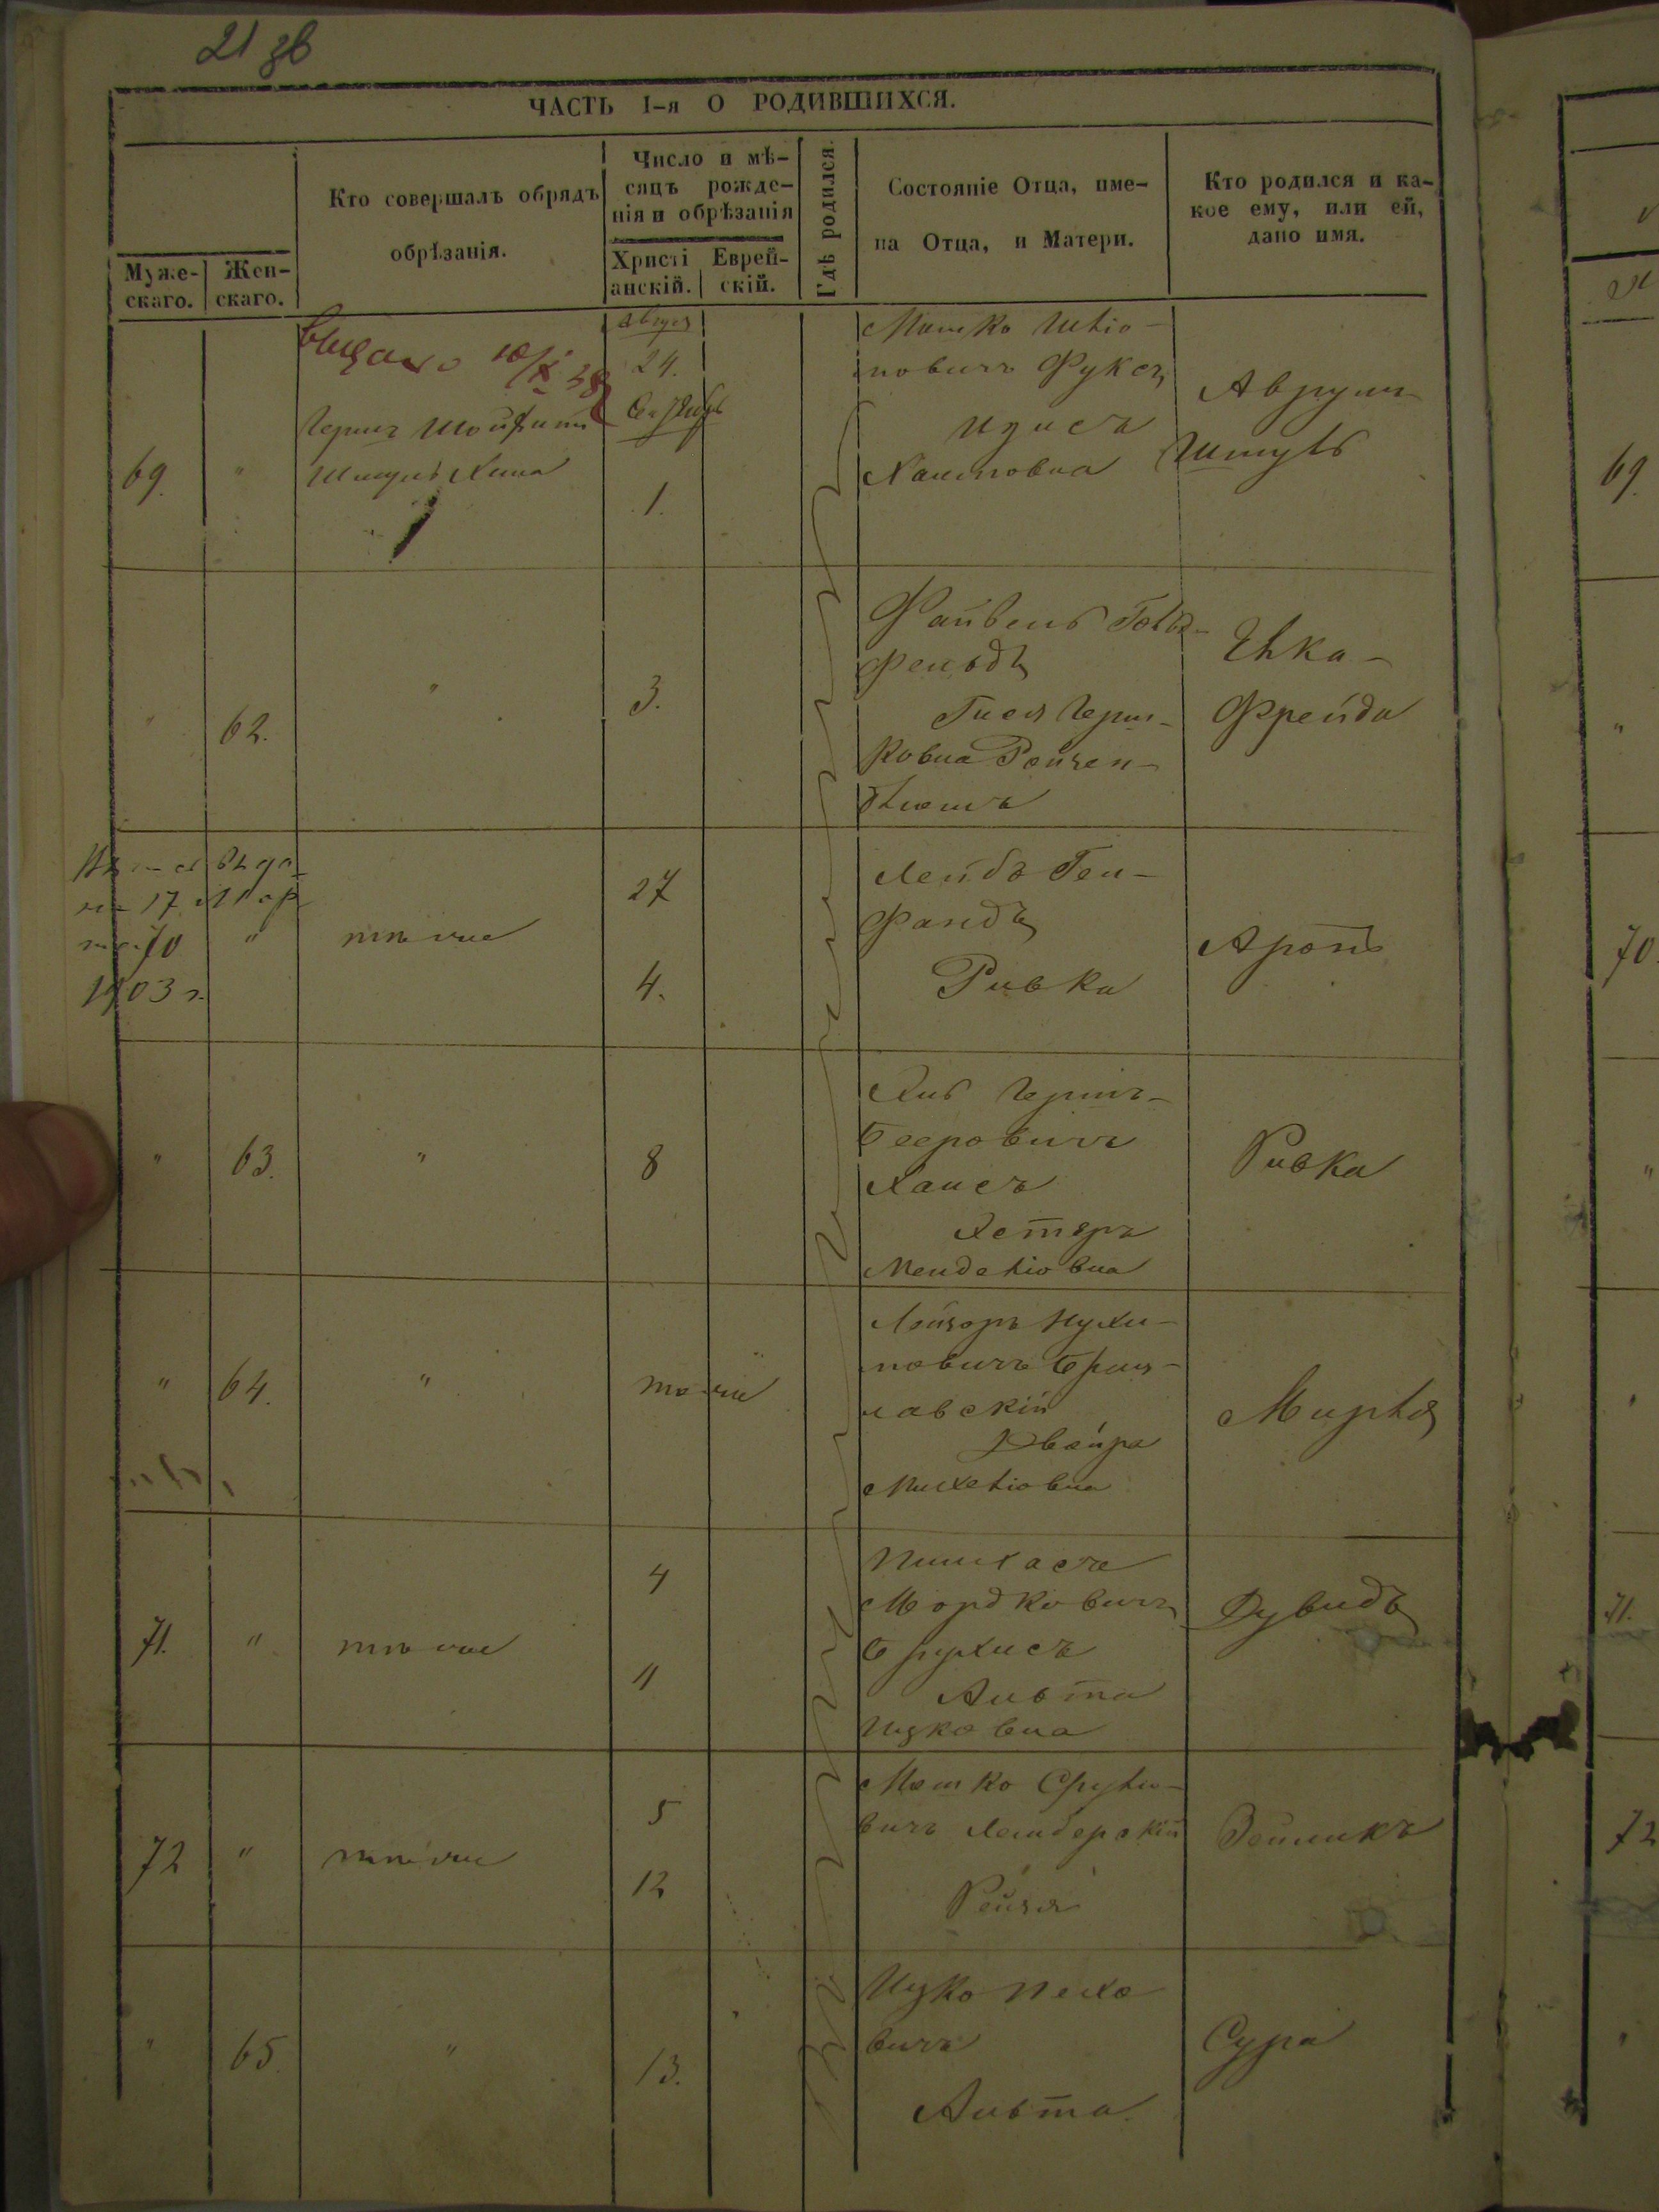 21 зв
ЧАСТЬ I-я О РОДИВШИХСЯ.
Муже-
скаго.
Жен-
скаго.
Кто совершалъ обрядъ
обрѣзанія.
Число и мѣ-
сяцъ рожде-
нія и обрѣзанія
Христі
анскій.
Еврей-
скій.
Гдѣ родился.
Состояніе Отца, име-
на Отца, и Матери.
Кто родился и ка-
кое ему, или ей,
дано имя.
69.
"
Выдано 10/X 38
Гершъ
Шмуль Хина
24.
1.
Мошко Шліо-
мовичъ Фуксъ
Хаимовна
Аврумъ
Шмуль
"
62.
"
3.
Файвель Гольд-
фельдъ
Гися Герш-
ковна Розен-
блюмъ
Элка-
Фрейда
17 Мар
1903 г.
70
"
тѣ же
27
4.
Лейбъ Гел-
фандъ
Ривка
Аронъ
"
63.
"
8
Гершъ-
Беровичъ
Хаисъ
Естеръ
Менделіовна
Ривка
"
64.
"
тоже
Лейзоръ Нухи-
мовичъ Брац-
лавскій
Двойра
Михеліовна
Мирля
71.
"
тѣ же
4
11
Пинхасъ
Мордковичъ
Брухисъ
Ицковна
Дувидъ
72
"
тѣ же
5
12
Мошко Срули-
вичъ Лемберскій
Рейзя
Зейликъ
"
65.
"
13.
Ицко
вичъ
Сура